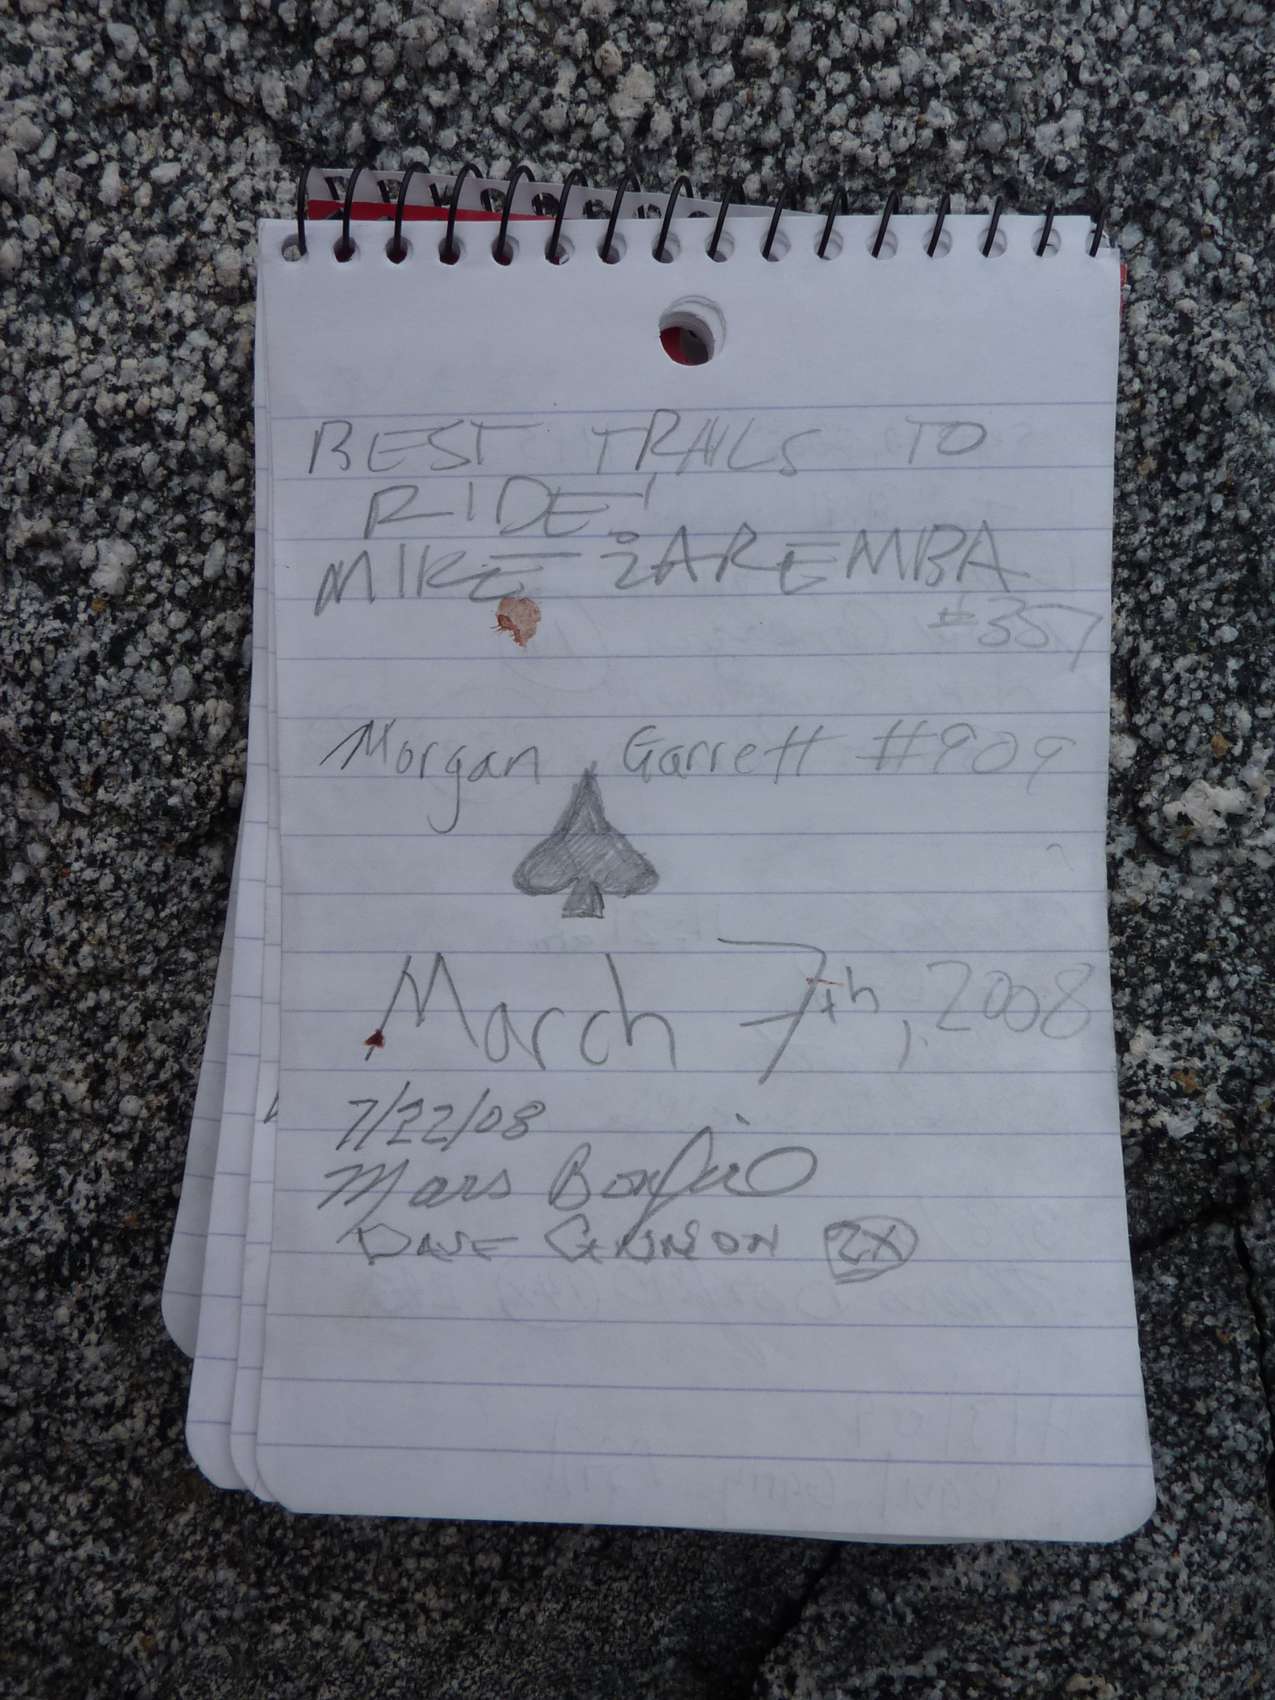 BEST TRAILS TO
RIDE!
MIKE ZAREMBA
#357
Morgan Garrett #909
March 7th, 2008
7/22/08
Mars Bonfire
DAVE
2X